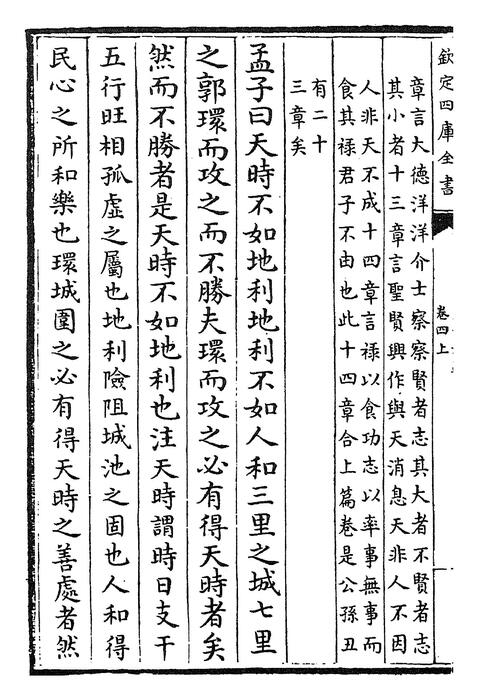 欽定四庫全書
卷四上
章言大德洋洋介士察察賢者志其大者不賢者志
其小者十三章言聖賢興作與天消息天非人不因
人非天不成十四章言祿以食功志以率事無事而
食其祿君子不由也此十四章合上篇卷是公孫丑
有二十
三章矣
孟子曰天時不如地利地利不如人和三里之城七里
之郭環而攻之而不勝夫環而攻之必有得天時者矣
然而不勝者是天時不如地利也注天時謂時日支干
五行旺相孤虛之屬也地利險阻城池之固也人和得
民心之所和樂也環城圍之必有得天時之善處者然